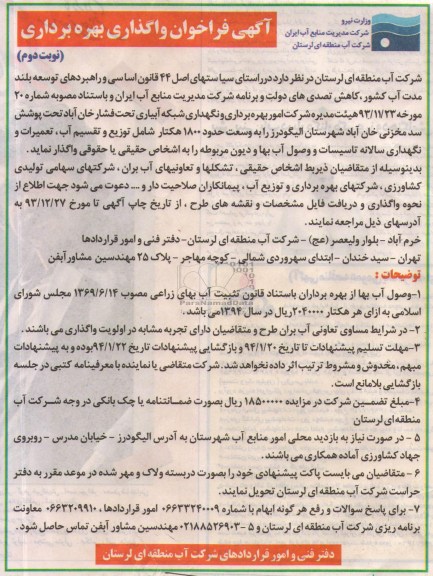 وزارت نیرو
شرکت مدیریت منابع آب ایران
شرکت آب منطقه ای لرستان
آگهی فراخوان واگذاری بهره برداری
(نوبت دوم)
شرکت آب منطقه ای لرستان در نظر دارد در راستای سیاستهای اصل ۴۴ قانون اساسی و راهبردهای توسعه بلند
مدت آب کشور، کاهش تصدی های دولت و برنامه شرکت مدیریت منابع آب ایران و باستناد مصوبه شماره ۲۰
مورخه ۹۳/۱۱/۲۳ هیئت مدیره شرکت امور بهره برداری و نگهداری شبکه آبیاری تحت فشار خان آباد تحت پوشش
سد مخزنی خان آباد شهرستان الیگودرز را به وسعت حدود ۱۸۰۰ هکتار شامل توزیع و تقسیم آب، تعمیرات و
نگهداری سالانه تاسیسات و وصول آب بها و دیون مربوطه را به اشخاص حقیقی یا حقوقی واگذار نماید.
بدینوسیله از متقاضیان ذیربط اشخاص حقیقی، تشکلها و تعاونیهای آب بران، شرکتهای سهامی تولیدی
کشاورزی، شرکتهای بهره برداری و توزیع آب، پیمانکاران صلاحیت دار و .... دعوت می شود جهت اطلاع از
نحوه واگذاری و دریافت فایل مشخصات و نقشه های طرح، از تاریخ چاپ آگهی تا مورخ ۹۳/۱۲/۲۷ به
آدرسهای ذیل مراجعه نمایند.
خرم آباد - بلوار ولیعصر (عج) - شرکت آب منطقه ای لرستان - دفتر فنی و امور قراردادها
تهران - سید خندان - ابتدای سهروردی شمالی - کوچه مهاجر - پلاک ۲۵ مهندسین مشاور آبفن
توضیحات :
۱- وصول آب بها از بهره برداران باستناد قانون تثبیت آب بهای زراعی مصوب ۱۳۶۹/۶/۱۴ مجلس شورای
اسلامی به ازای هر هکتار ۲۰۴۰۰۰۰ ریال در سال ۱۳۹۴ می باشد.
۲- در شرایط مساوی تعاونی آب بران طرح و متقاضیان دارای تجربه مشابه در اولویت واگذاری می باشند.
۳- مهلت تسلیم پیشنهادات تا تاریخ ۹۴/۱/۲۰ و بازگشایی پیشنهادات تاریخ ۹۴/۱/۲۲ بوده و به پیشنهادات
مبهم، مخدوش و مشروط ترتیب اثر داده نخواهد شد. شرکت متقاضی یا نماینده با معرفینامه کتبی در جلسه
بازگشایی بلامانع است.
۴- مبلغ تضمین شرکت در مزایده ۱۸۵۰۰۰۰۰ ریال بصورت ضمانتنامه یا چک بانکی در وجه شرکت آب
منطقه ای لرستان
۵ - در صورت نیاز به بازدید محلی امور منابع آب شهرستان به آدرس الیگودرز - خیابان مدرس - روبروی
جهاد کشاورزی آماده همکاری می باشند.
۶ - متقاضیان می بایست پاکت پیشنهادی خود را بصورت دربسته ولاک و مهر شده در موعد مقرر به دفتر
حراست شرکت آب منطقه ای لرستان تحویل نمایند.
۷- برای پاسخ سوالات و رفع هر گونه ابهام با شماره ۰۶۶۳۳۲۴۰۰۰۹ امور قراردادها، ۰۶۶۳۲۰۹۹۱۰ معاونت
برنامه ریزی شرکت آب منطقه ای لرستان و ۵ -۰۲۱۸۸۵۲۶۹۰۳ مهندسین مشاور آبفن تماس حاصل شود.
دفتر فنی و امور قراردادهای شرکت آب منطقه ای لرستان